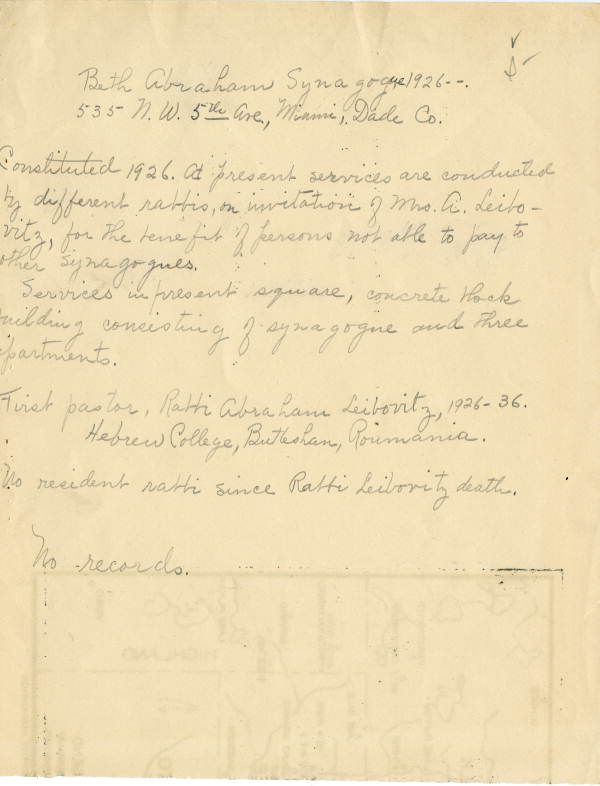 Beth Abraham Synagogue, 1926--.
535 N.W. 5th Ave, Miami, Dade Co.
Constituted 1926. At present services are conducted
by different rabbis, on invitation of Mrs. A. Leibo-
vitz, for the benefit of persons not able to pay to
other synagogues.
Services in present square, concrete block
building consisting of synagogue and three
apartments.
First pastor, Rabbi Abraham Leibovitz, 1926-36.
Hebrew College, Buteshan, Roumania.
No resident rabbi since Rabbi Leibovitz death.
No records.
HIGHLAND